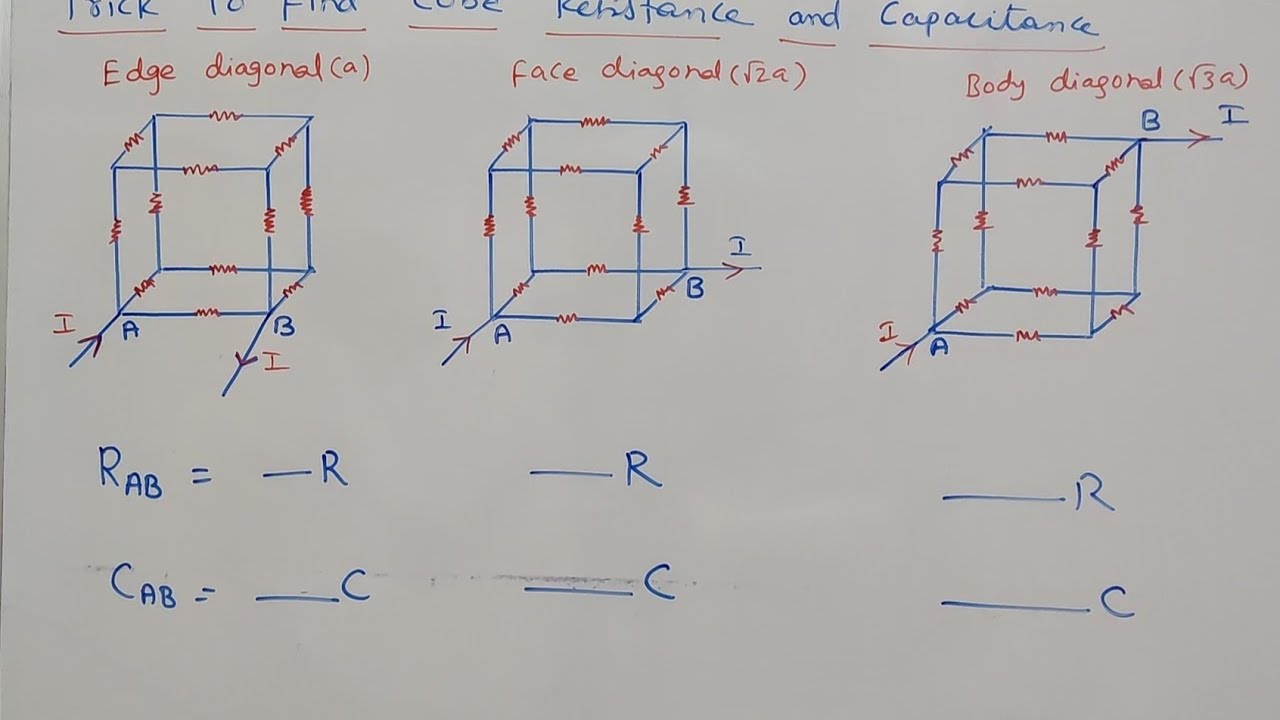 Trick To Find Cube Resistance and Capacitance
Edge diagonal(a)
Face diagonal(√2a)
Body diagonal(√3a)
I A B I
I A B I
I A B I
R_AB = __R
__R
__R
C_AB = __C
__C
__C